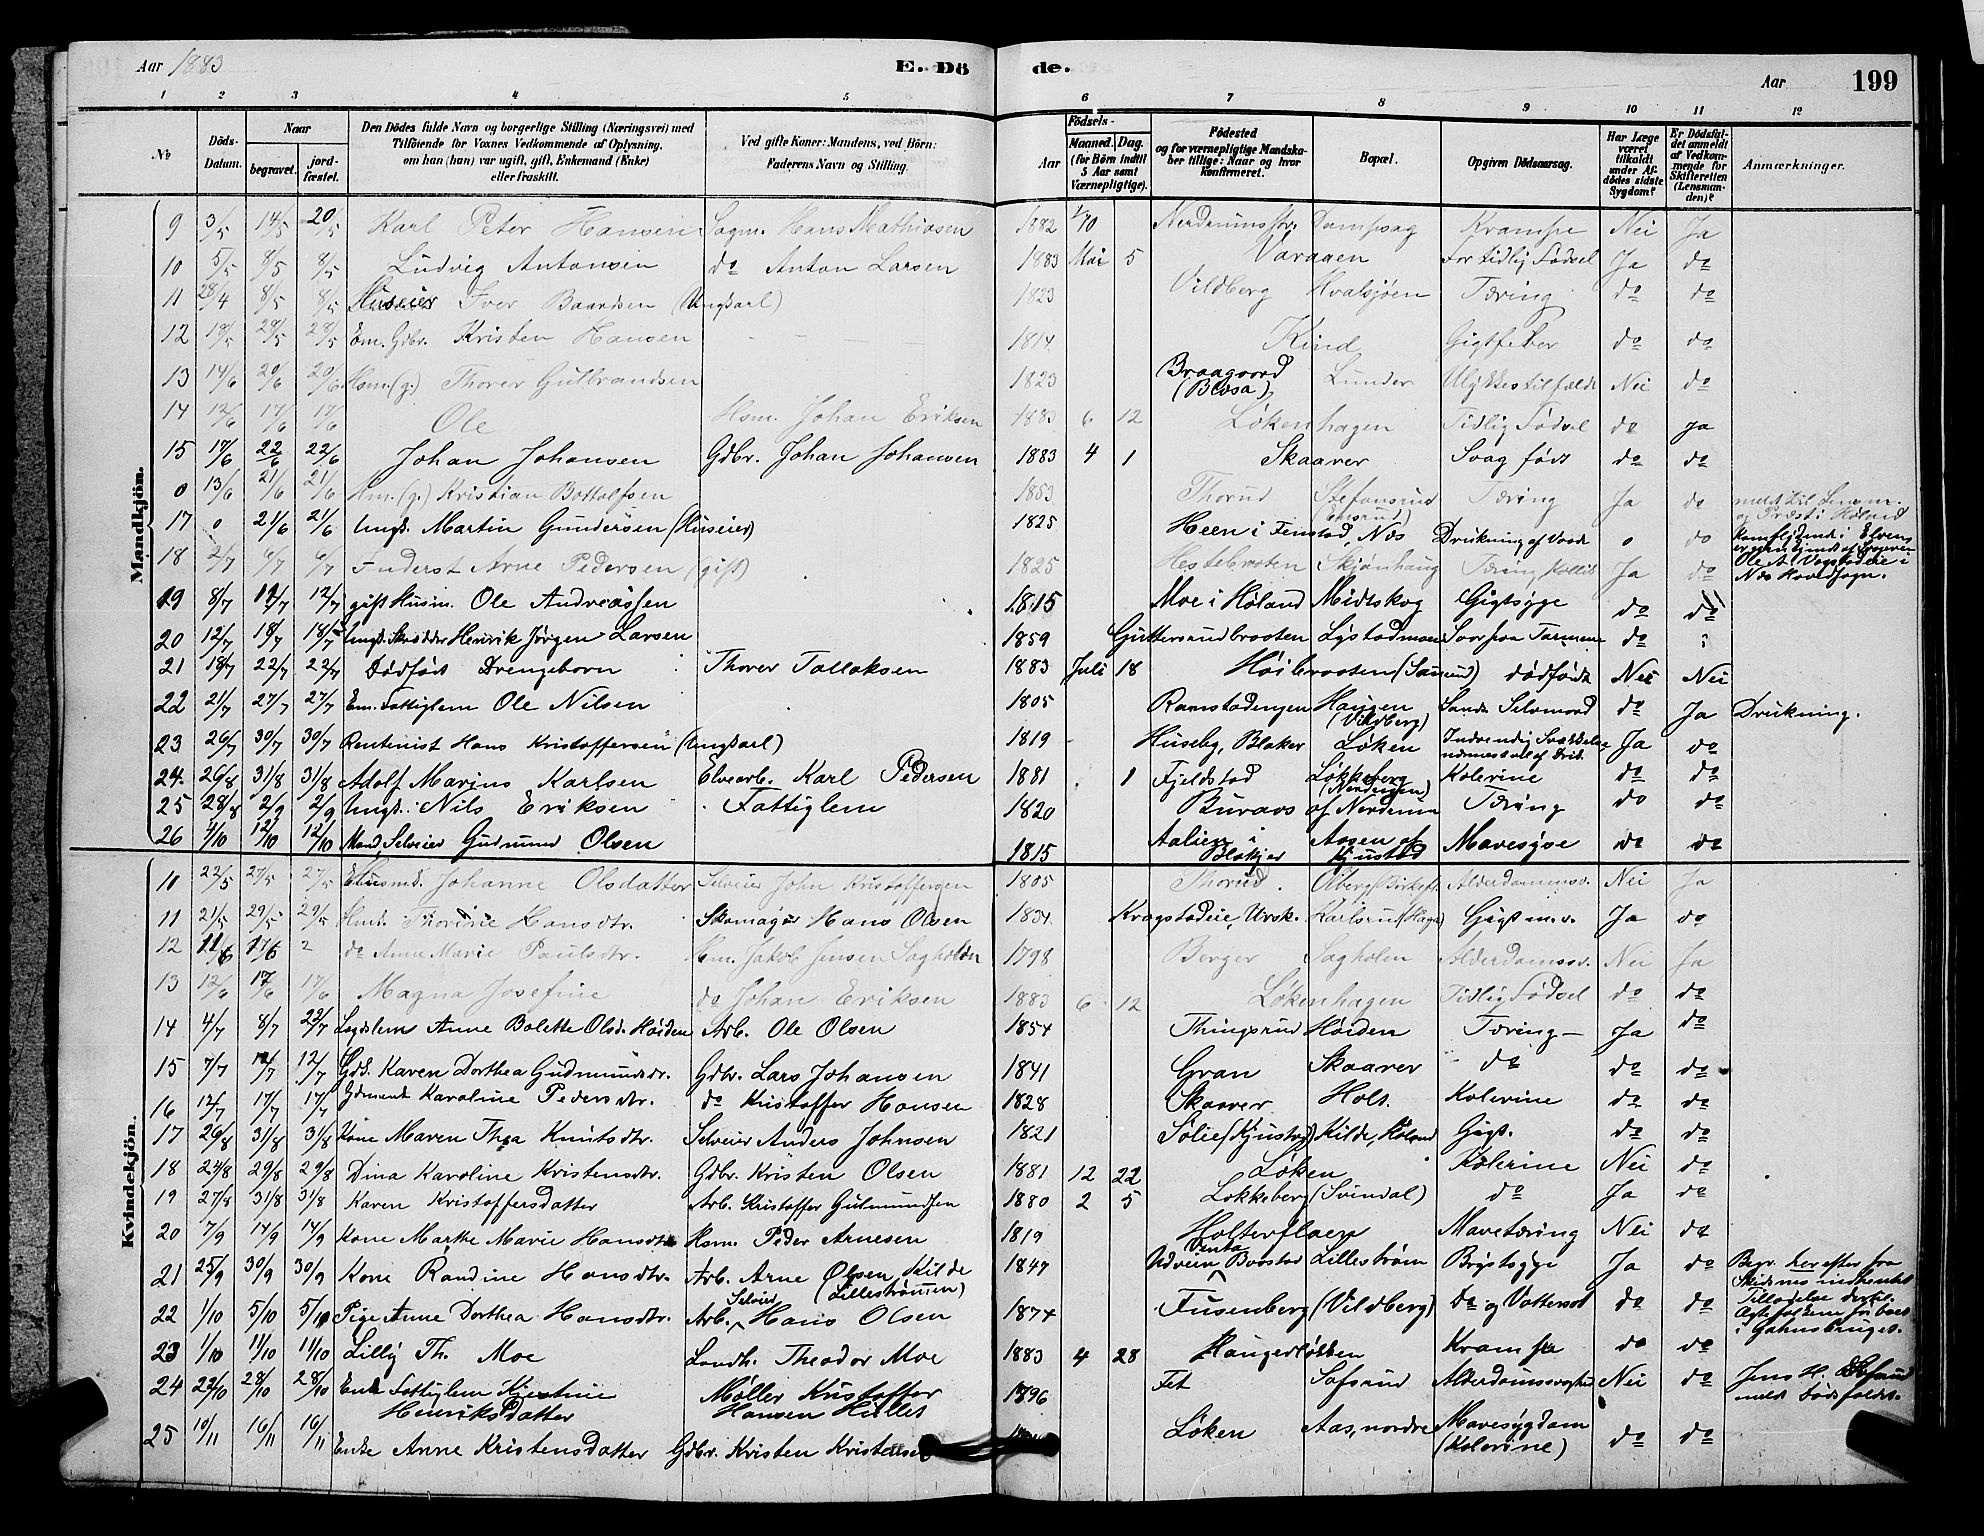 Aar 1883 E. Dö de. Aar 199
1 2 3 4 5 6 7 8 9 10 11 12
No Döds-Datum. Naar begravet. jord-fæstet. Den Dödes fulde Navn og borgerlige Stilling (Næringsvei) med Tilföiende for Voxnes Vedkommende af Oplysning, om han (hun) var ugift, gift, Enkemand (Enke) eller fraskilt. Ved gifte Koner: Mandens, ved Börn: Faderens Navn og Stilling. Födsels- Aar Maaned. Dag. (for Börn indtil 5 Aar samt Værnepligtige). Födested og for værnepligtige Mandska-ber tillige: Naar og hvor konfirmeret. Bopæl. Opgiven Dödsaarsag. Har Læge været tilkaldt under Af-dödes sidste Sygdom? Er Dödsfal-det anmeldt af Vedkom-mende for Skifteretten (Lensman-den)? Anmærkninger.
Mandkjön.
9 3/5 14/5 20/5 Karl Peter Hansen Sagm. Hans Mathiasen 1882 1/10 Nerdrumsstr. Dampsag Krampe Nei Ja
10 5/5 8/5 8/5 Ludvig Antonsen do Anton Larsen 1883 Mai 5 Varaaen For tidlig Födsel Ja do
11 28/4 8/5 8/5 Huseier Iver Baardsen (Ungkarl) 1823 Vildberg Hvalsjøen Tæring do do
12 18/5 28/5 28/5 Em. Gdbr. Kristen Hansen 1814 Kind Gigtfeber do do
13 14/6 20/6 20/6 Hsm. (g.) Thorer Gulbrandsen 1823 Braagaard (Blæsa) Lunder Ulykkestilfælde Nei do
14 12/6 17/6 17/6 Ole Hsm. Johan Eriksen 1883 6 12 Løkenhagen Tidlig Födsel do Ja
15 17/6 22/6 22/6 Johan Johansen Gdbr. Johan Johansen 1883 4 1 Skaarer Svag født do do
0 13/6 21/6 21/6 Hm. (g.) Kristian Bottolfsen 1853 Thorud Stefansrud Tæring Ja do
17 0 21/6 21/6 Ungk. Martin Gundersen (Huseier) 1825 Heen i Fenstad, Næs Drukning af Vaade 0 do
18 2/7 6/7 6/7 Inderst Arne Pedersen (gift) 1825 Hestebraaten Skjønhaug Tæring Ja do Næs Hovedsogn.
19 8/7 12/7 12/7 gift Husm. Ole Andreassen 1815 Moe i Høland Midtskog Gigtsyge do do
20 12/7 18/7 18/7 Ungk. Skrædder Henrik Jørgen Larsen 1859 Guttersrudbraaten Lystadmoen Saar paa Tarmene do
21 18/7 22/7 22/7 Dødfødt Drengebarn Thorer Tollaksen 1883 Juli 18 Høibraaten dødfødt Nei Nei
22 21/7 27/7 27/7 Em. Fattiglem Ole Nilsen 1805 Ramstadengen Haugen (Vildberg) Selvmord do Ja Drukning.
23 26/7 30/7 30/7 Rentenist Hans Kristoffersen (Ungkarl) 1819 Huseby, Blaker Løken Indvendig Svækkelse Ja do
24 26/8 31/8 31/8 Adolf Marius Karlsen Elvearb. Karl Pedersen 1881 1 Fjeldstad Løkkeberg (Nordengen) Kolerine do do
25 28/8 2/9 2/9 Ungk. Nils Eriksen Fattiglem 1820 Buraas af Nerdrum Tæring do do
26 4/10 12/10 12/10 Mand, Selveier Gudmund Olsen 1815 Aalien i Blakjer Aasen af Kjustad Mavesyge do do
Kvindekjön.
10 22/5 27/5 27/5 Johanne Olsdatter Selveier John Kristoffersen 1805 Thorud Alderdomssv. Nei Ja
11 21/5 29/5 29/5 Thorine Hansdtr. Skomager Hans Olsen 1834 Kragstadeie, Ursk. Karlsrud Gigt m.v. Ja do
12 11/6 17/6 2 do Anne Marie Paulsdtr. Hsm. Jakob Jensen Sagholen 1798 Berger Sagholen Alderdomssv. Nei Ja
13 12/6 17/6 17/6 Magna Josefine do Johan Eriksen 1883 6 12 Løkenhagen Tidlig Födsel do do
14 4/7 8/7 22/7 Lægdslem Anne Bolette Olsd. Høiden Arb. Ole Olsen 1854 Thingsrud Høiden Tæring Ja do
15 7/7 12/7 12/7 Gdk. Karen Dorthea Gudmundsdr. Gdbr. Lars Johansen 1841 Gran Skaarer do do do
16 12/7 17/7 17/7 Karoline Pedersdtr. do Kristoffer Hansen 1828 Skaarer Holt. Kolerine do do
17 26/8 31/8 31/8 Kone Maren Thea Knutsdtr. Selveier Anders Johnsen 1821 Solie (Kjustad) Kilde, Høland Gigt. do do
18 24/8 29/8 29/8 Dina Karoline Kristensdtr. Gdbr. Kristen Olsen 1881 12 22 Løken Kolerine Nei do
19 27/8 31/8 31/8 Karen Kristoffersdatter Arb. Kristoffer Gudmundsen 1880 2 5 Løkkeberg (Svindal) do Ja do
20 7/9 14/9 14/9 Kone Marthe Marie Hansdtr. Hsm. Peder Arnesen 1819 Holterflaen Mavetæring Nei do
21 25/9 30/9 30/9 Kone Randine Hansdtr. Arb. Arne Olsen, Kilde (Lillestrømmen) 1847 Lillestrøm Brystsyge Ja do Begr. her efter fra
22 1/10 5/10 5/10 Pige Anne Dorthea Hansdtr. Arb. Selveier Hans Olsen 1874 Fusenberg (Vildberg) do og Vattersot do do i Gahnsbruget.
23 1/10 11/10 11/10 Lilly Th. Moe Landh. Theodor Moe 1883 4 28 Haugerløkken Krampe do do
24 22/10 28/10 28/10 Enke Fattiglem Kjestine Henriksdatter Møller Kristoffer Hansen Hullet 1796 Fet Sofsrud Alderdomssvaghed Nei do Jens H. meldt dødsfaldet.
25 10/11 16/11 16/11 Enke Anne Kristensdatter Gdbr. Kristen Kristensen Løken Aas, nordre Mavesygdom (Kolerine) do do